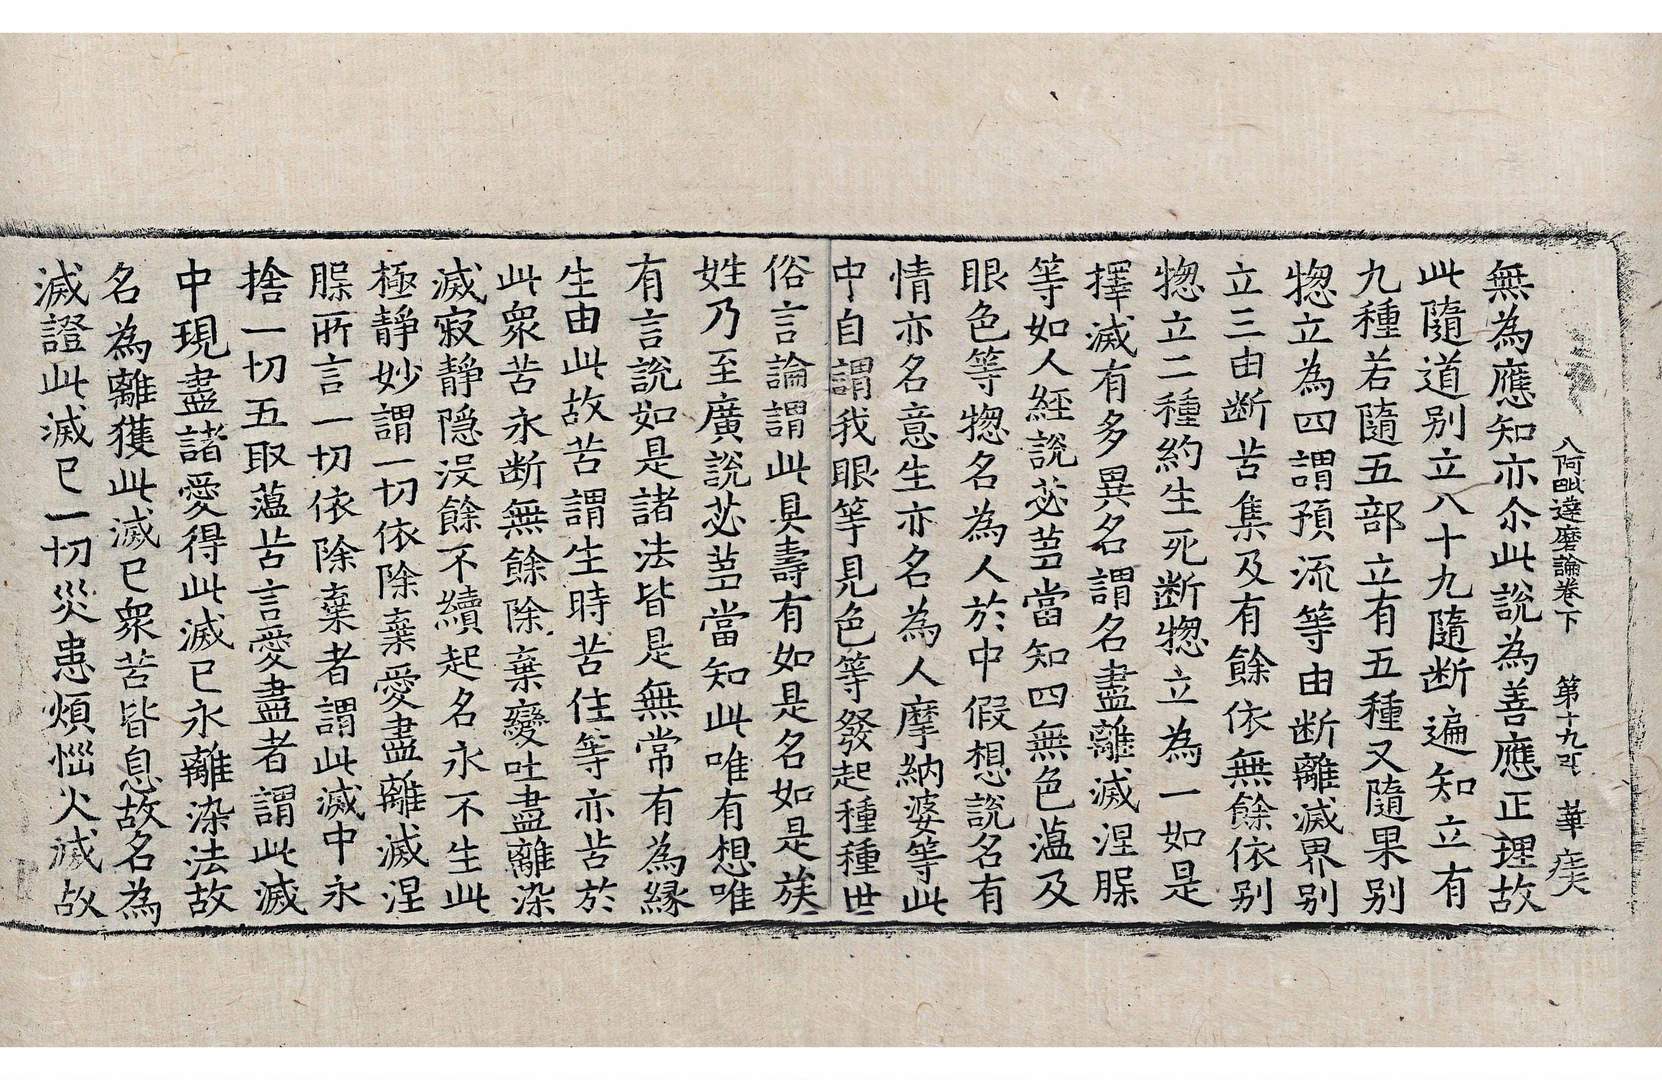 入阿毗達磨論卷下 第十九 華
無為應知亦尒此說為善應正理故
此隨道別立八十九隨断遍知立有
九種若隨五部立有五種又隨果別
惣立為四謂預流等由断離滅界別
立三由断苦集及有餘依無餘依別
惣立二種約生死断惣立為一如是
擇滅有多異名謂名盡離滅涅槃
等如人經說苾蒭當知四無色蘊及
眼色等惣名為人於中假想說名有
情亦名意生亦名為人摩納婆等此
中自謂我眼等見色等發起種種世
俗言論謂此具壽有如是名如是族
姓乃至廣說苾蒭當知此唯有想唯
有言說如是諸法皆是無常有為緣
生由此故苦謂生時苦住等亦苦於
此眾苦永断無餘除棄變吐盡離染
滅寂靜隱没餘不續起名永不生此
極靜妙謂一切依除棄愛盡離滅涅
槃所言一切依除棄者謂此滅中永
捨一切五取蘊苦言愛盡者謂此滅
中現盡諸愛得此滅已永離染法故
名為離獲此滅已眾苦皆息故名為
滅證此滅已一切災患煩惱火滅故